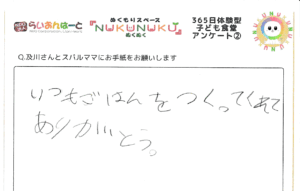 らいおんはーと
ぬくもりスペース
『NUKUNUKU』
ぬくぬく
365日体験型
子ども食堂
アンケート②
Q.及川さんとスバルママにお手紙をお願いします
いつもごはんをつくってくれて
ありがとう。